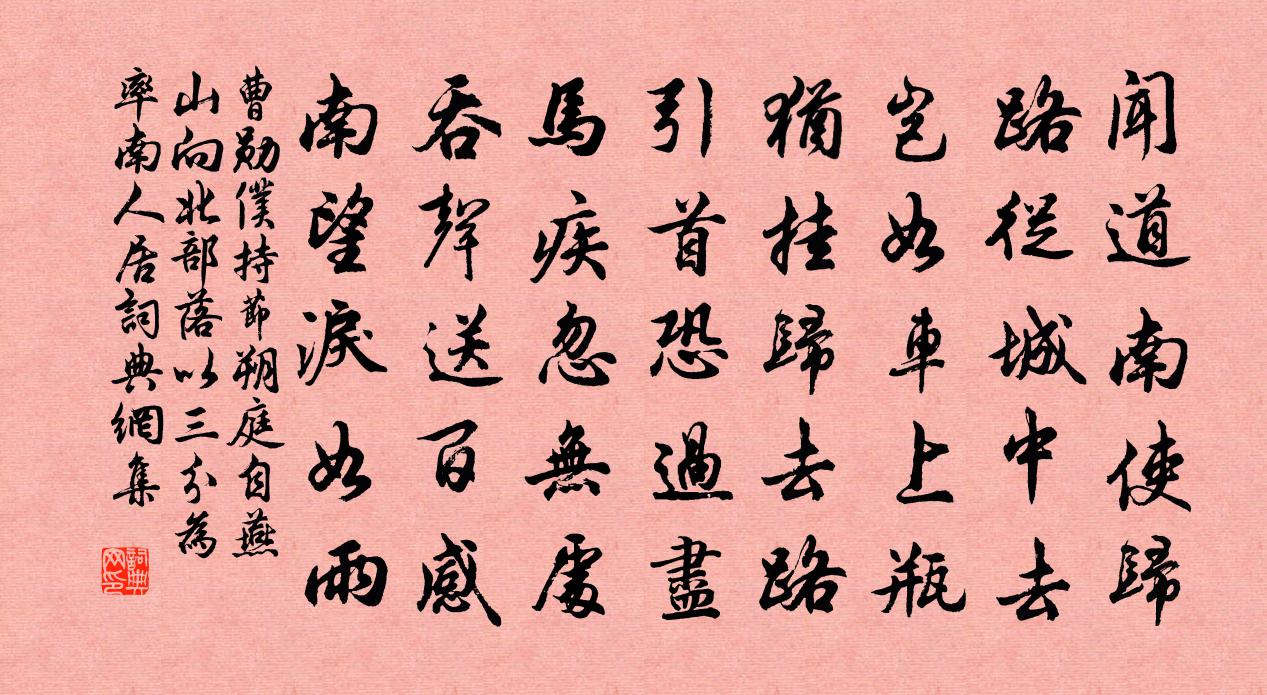 聞道南使歸
路從城中去
豈如車上瓶
猶挂歸去路
引首恐過盡
馬疾忽無處
吞聲送百感
南望淚如雨
曹勛僕持節朔庭自燕
山向北部落以三分為
率南人居詞典網集
詞典
网印